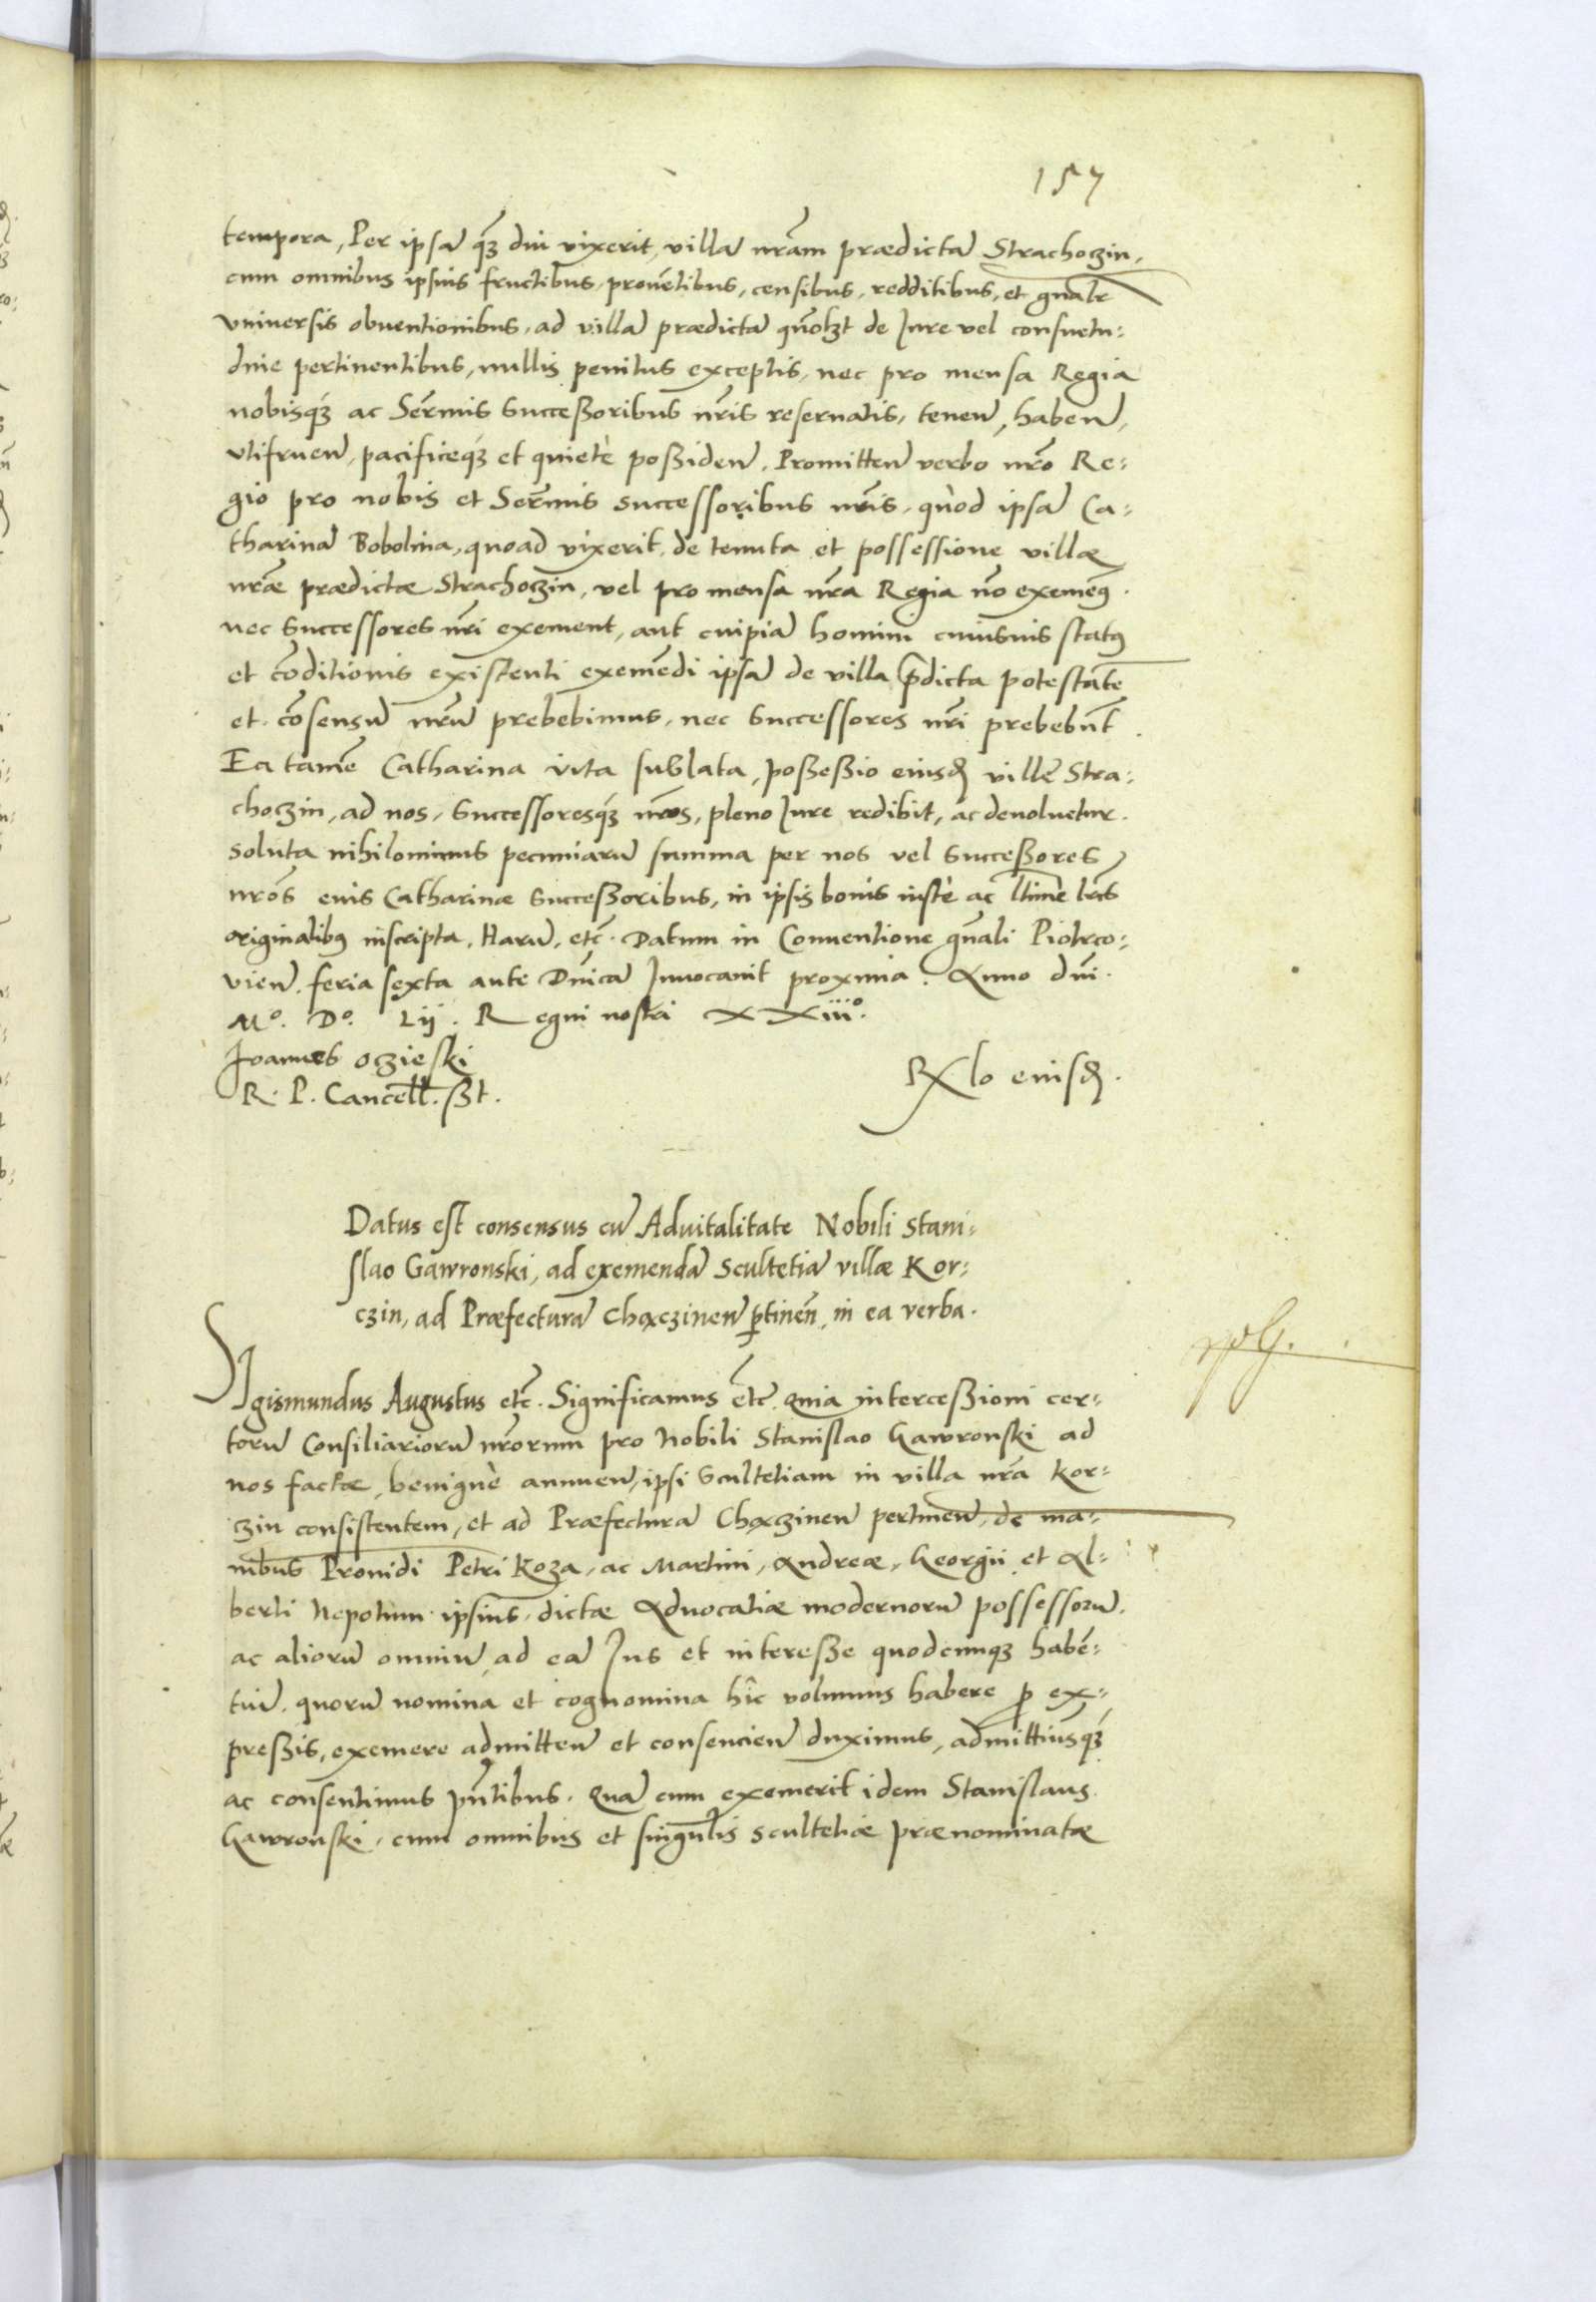 157
tempora, Per ipsā q̃ꝫ diu vixerit, villā nr̃am prædictā Strachoczin,
cum omnibus ipsius fructibus, prouētibus, censibus, redditibus, et gn̄alr
vniuersis obuentionibus, ad villā prædictā qūolꝫt de Iure vel consuetu:
dine pertinentibus, nullis penitus exceptis, nec pro mensa Regia
nobisqꝫ ac Serm̄is Succeßoribus nr̃is reseruatis, tenen̄, haben̄,
vtifruen̄, pacificeqꝫ et quietè poßiden̄. Promitten̄ verbo nr̃o Re:
gio pro nobis et Serm̄is successoribus nr̃is, quòd ipsā Ca:
tharinā Bobolina, quoad vixerit, de tenuta et possessione villæ
nr̃æ prædictæ Strachoczin, vel pro mensa nr̃a Regia nō exemēꝰ.
nec Successores nr̃i exement, aut cuipiā homini cuiusuis statꝰ
et cōditionis existenti exemēdi ipsā de villa p̄dicta potestatē
et cōsensū nr̃ū prebebimus, nec Successores nr̃i prebebūt.
Ea tamē Catharina vita sublata, poßeßio eiusd villę Stra:
choczin, ad nos, Successoresqꝫ nr̃os, pleno Iure redibit, ac deuoluetur.
soluta nihilominus pecuniarū summa per nos vel Succeßores
nr̃os eius Catharinæ Succeßoribus, in ipsis bonis iustè ac lt̄imè lr̃is
originalibꝰ inscripta, Harū, etc̃. Datum in Conuentione gn̄ali Piotrco:
vien̄. feria sexta ante Dn̄icā Inuocauit proxima. Anno dn̄i.
Mº. Dº. Lij. Regni nostri XXiiiº.
Joannes oczieski
R. P. Cancell. ßt.
Rlo eiusd.
Datus est consensus cū Aduitalitate Nobili Stani:
slao Gawronski, ad exemendā Scultetiā villæ Kor:
czin, ad Præfecturā Choczinen̄ ꝑtinēn, in ea verba.
Sigismundus Augustus etc̃. Significamus etc̃. Quia interceßioni cer:
torū Consiliariorū nr̃orum pro Nobili Stanislao Gawronski ad
nos factæ, benignè annuen̄, ipsi Scultetiam in villa nr̃a Kor:
czin consistentem, et ad Præfecturā Choczinen̄ pertinen̄, de ma:
nibus Prouidi Petri Koza, ac Martini, Andreæ, Georgii et Al:
berti Nepotum ipsius, dictæ Aduocatiæ modernorū possessorū,
ac aliorū omniū, ad eā Ius et intereße quodcunqꝫ habē:
tiū, quorū nomina et cognomina hîc volumus habere ꝓ ex:
preßis, exemere admitten̄ et consencien̄ duximus, admittimusqꝫ
ac consentimus pn̄tibus. Quā cum exemerit idem Stanislaus
Gawronski, cum omnibus et singulis scultetiæ prænominatæ